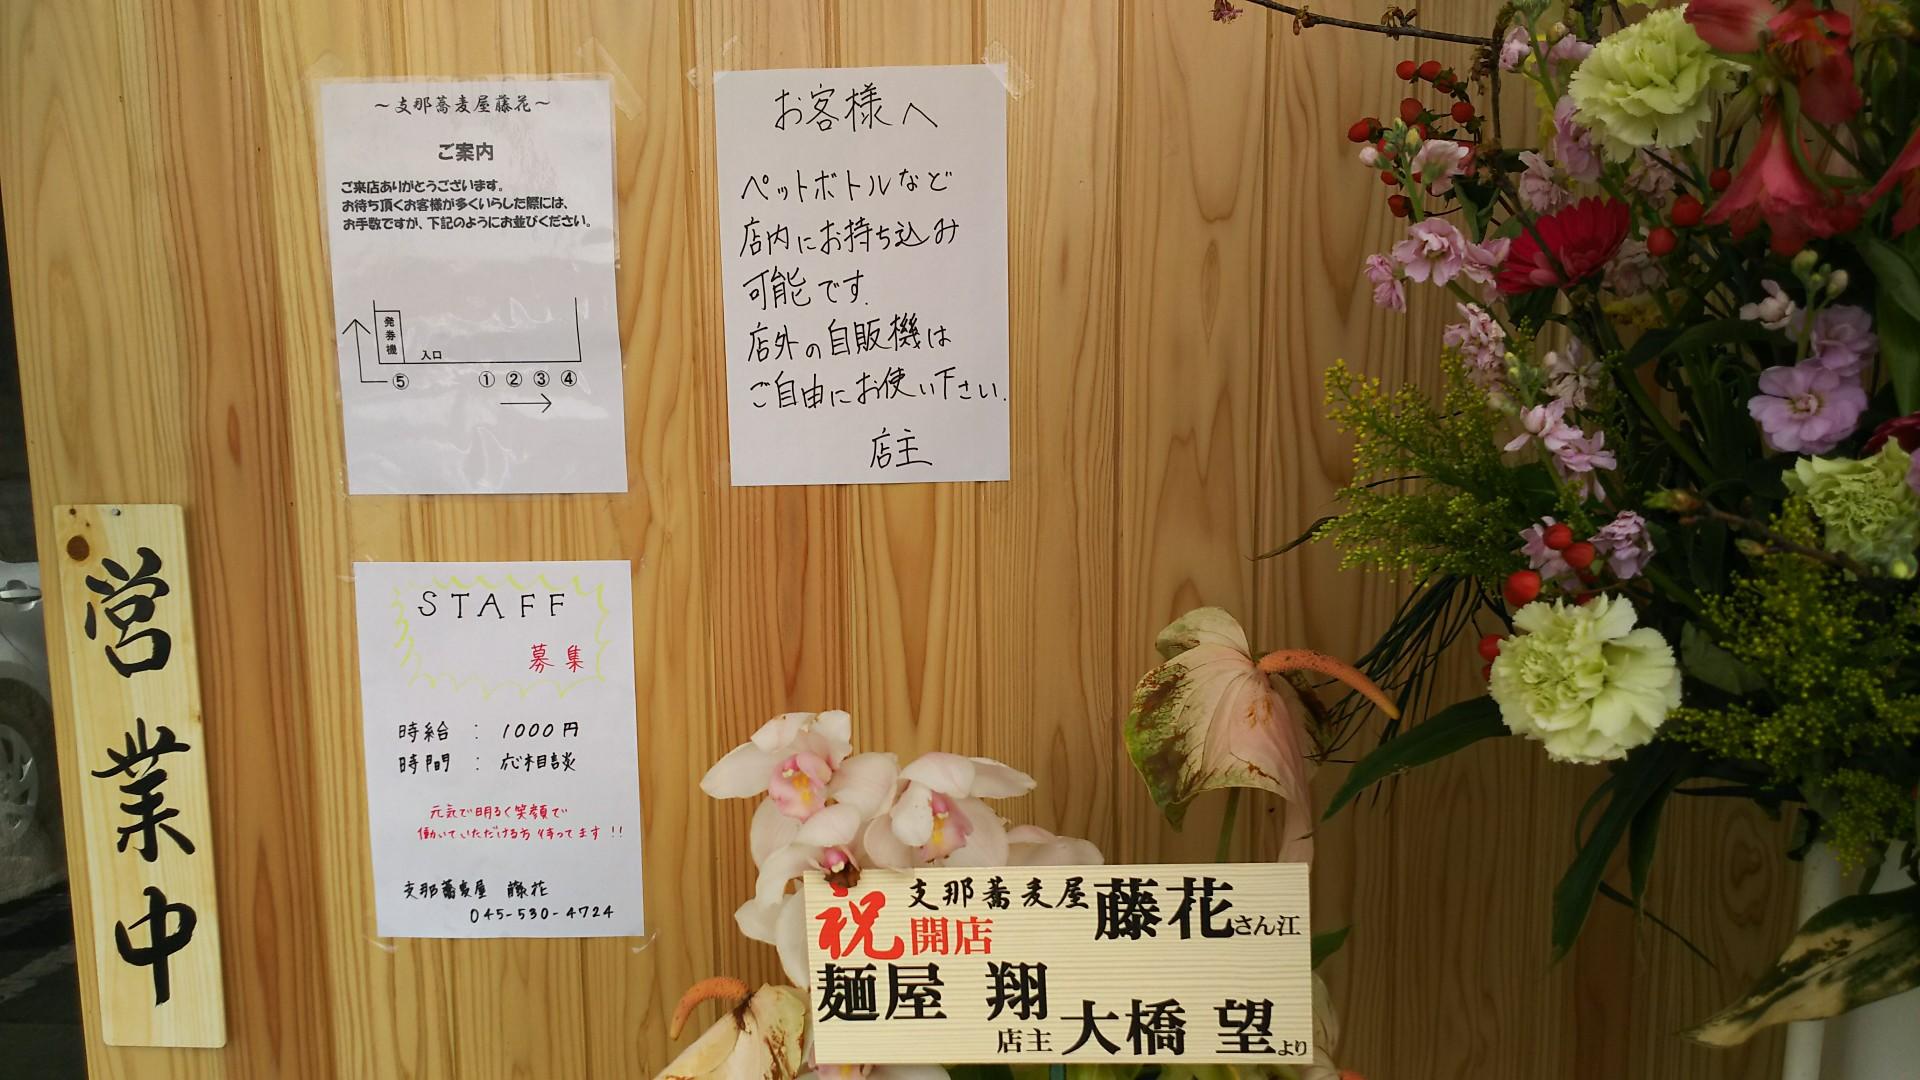 ～支那蕎麦屋藤花～
ご案内
ご来店ありがとうございます。
お待ち頂くお客様が多くいらした際には、
お手数ですが、下記のようにお並びください。
発券機
入口
⑤ ① ② ③ ④
お客様へ
ペットボトルなど
店内にお持ち込み
可能です.
店外の自販機は
ご自由にお使い下さい.
店主
営業中
STAFF
募集
時給 : 1000円
時間 : 応相談
元気で明るく笑顔で
働いていただける方 待ってます!!
支那蕎麦屋 藤花
045-530-4724
祝開店
支那蕎麦屋藤花さん江
麺屋 翔
店主 大橋 望より